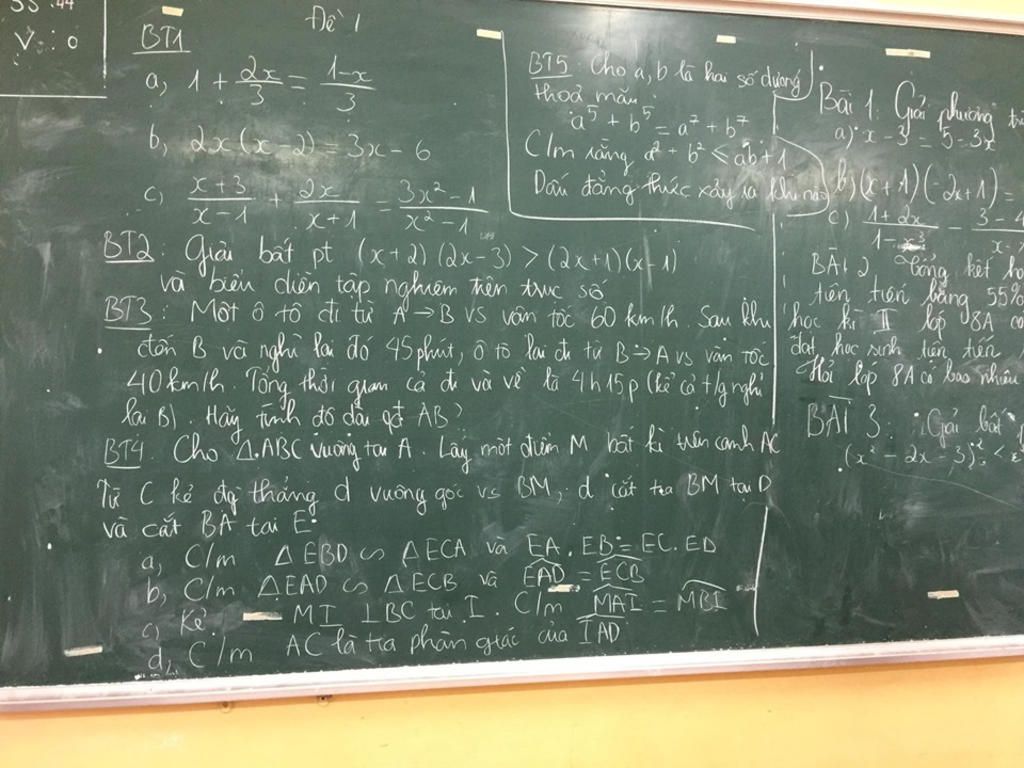 SS: 44
V: 0
Đề 1
BT1
a, 1 + 2x/3 = (1-x)/3
b, 2x(x-2) = 3x-6
c, (x+3)/(x-1) + 2x/(x+1) = (3x²-1)/(x²-1)
BT2: Giải bất pt (x+2)(2x-3) > (2x+1)(x-1)
và biểu diễn tập nghiệm trên trục số
BT3: Một ô tô đi từ A → B vs vân tốc 60 km/h. Sau khi
đến B và nghỉ lại đó 45 phút, ô tô lại đi từ B → A vs vân tốc
40 km/h. Tổng thời gian cả đi và về là 4h15p (kể cả t/g nghỉ
lại B). Hãy tính độ dài qđ AB?
BT4. Cho Δ.ABC vuông tại A. Lấy một điểm M bất kì trên cạnh AC
Từ C kẻ đg thẳng d vuông góc vs BM, d cắt tia BM tại D
và cắt BA tại E.
a, C/m Δ EBD ∽ Δ ECA và EA.EB = EC.ED
b, C/m Δ EAD ∽ Δ ECB và EAD = ECB
c, Kẻ MI ⊥ BC tại I. C/m MAI = MBI
d, C/m AC là tia phân giác của IAD
BT5: Cho a, b là hai số dương
thoả mãn:
a⁵ + b⁵ = a⁷ + b⁷
C/m rằng a² + b² ≤ ab + 1
Dấu đẳng thức xảy ra khi nào
Bài 1. Giải phương
a) x - 3 = 5 - 3x
b) (x+1)(-2x+1) =
c) (1+2x)/
BÀI 2 Tổng kết
tiên tiến bằng 55%
học kì II lớp 8A
đạt học sinh tiên tiến
Hỏi lớp 8A có bao nhiêu
BÀI 3: Giải bất
(x² - 2x - 3)² <